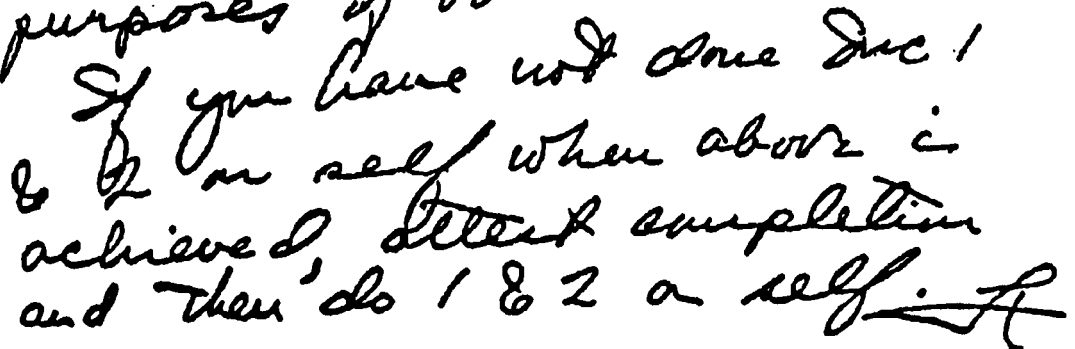 purposes of
If you have not done Inc 1
& 2 on self when above is
achieved, attest completion
and then do 1 & 2 on self.